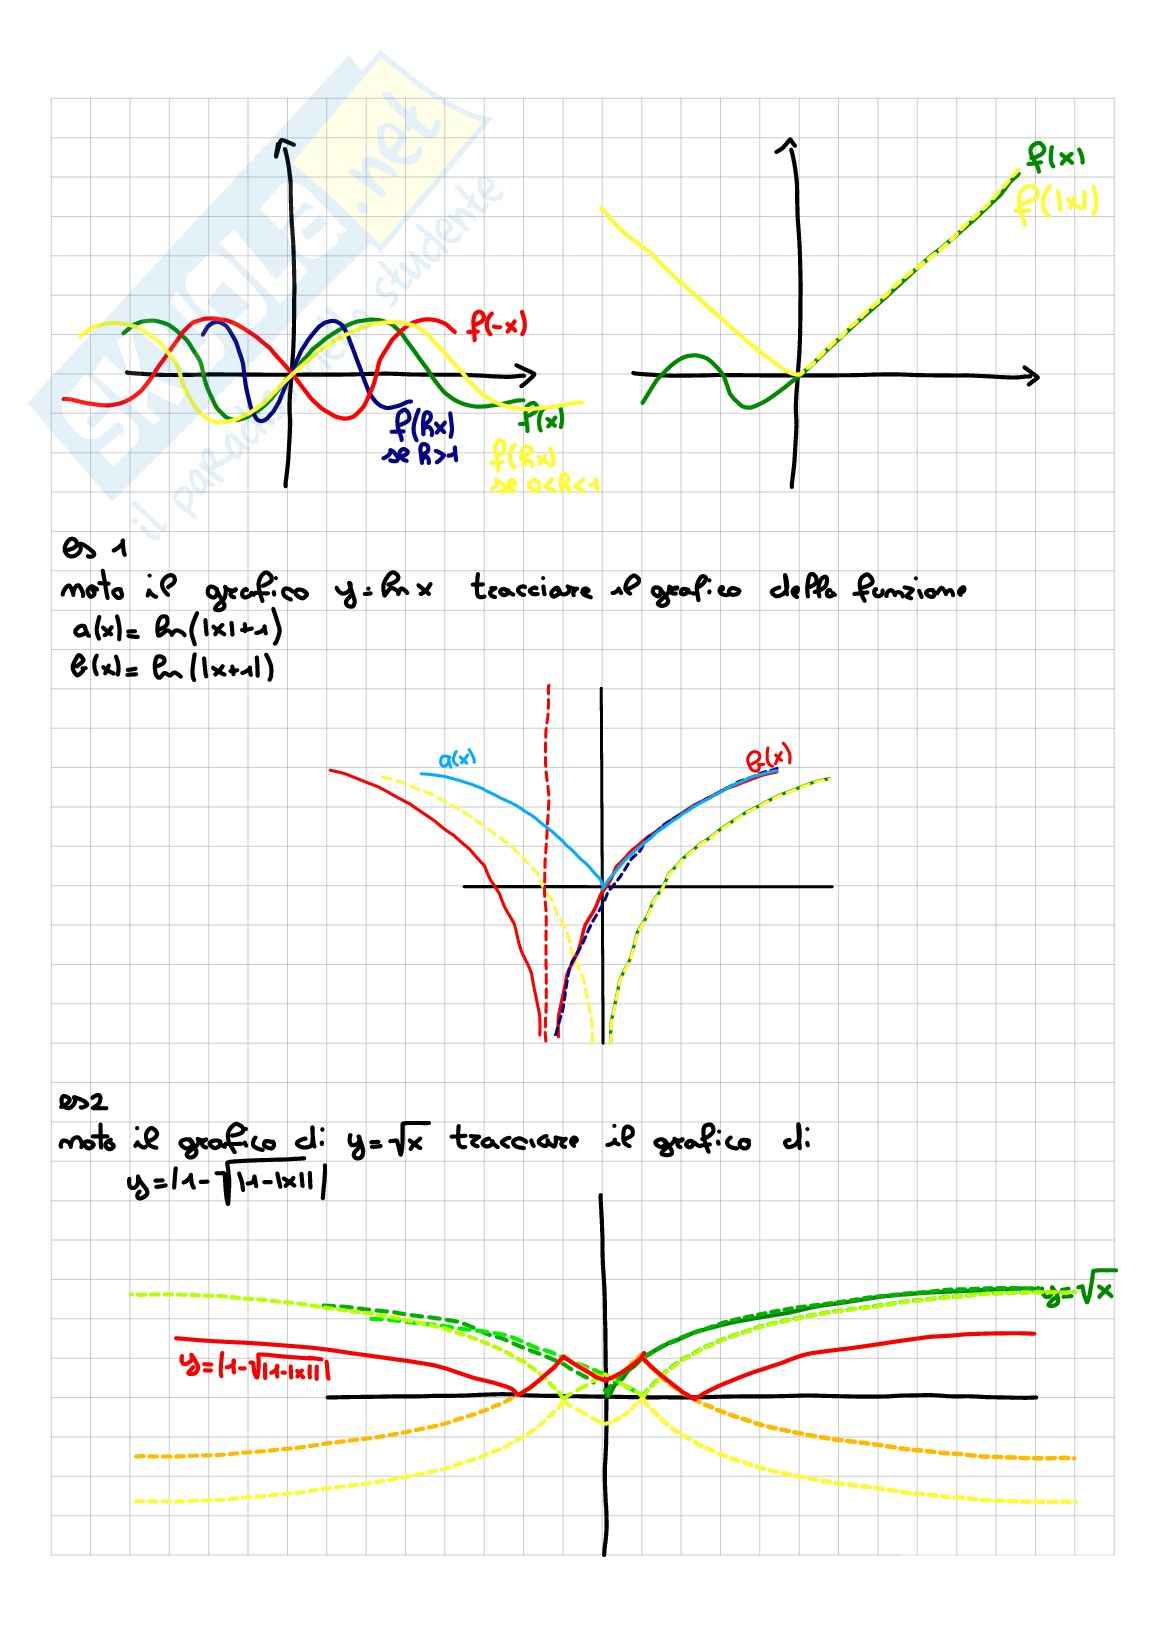 SKUOLA.net
il paracadute dello studente
f(x)
f(|x|)
f(-x)
f(hx)
se h>1
f(x)
f(hx)
se 0<h<1
es 1
noto il grafico y=ln x tracciare il grafico della funzione
a(x)= ln(|x|+1)
b(x)= ln(|x+1|)
a(x)
b(x)
es2
noto il grafico di y=√x tracciare il grafico di
y=|1-√|1-|x|||
y=√x
y=|1-√|1-|x|||